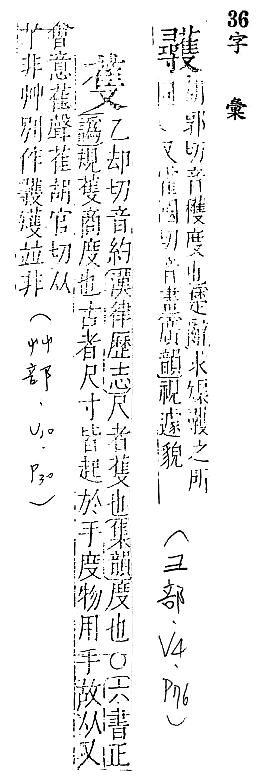 36
字彙
彠 胡郭切音鑊度也楚辭求矩彠之所
同 又 切音畫廣韻視遽貌
(彐部、V4、P76)
蒦 乙却切音約漢律歷志尺者蒦也集韻度也○六書正
譌規蒦商度也古者尺寸皆起於手度物用手故从又
會意雈聲雈胡官切从
𦫳非艸別作彠矱並非
(艸部、V10、P30)